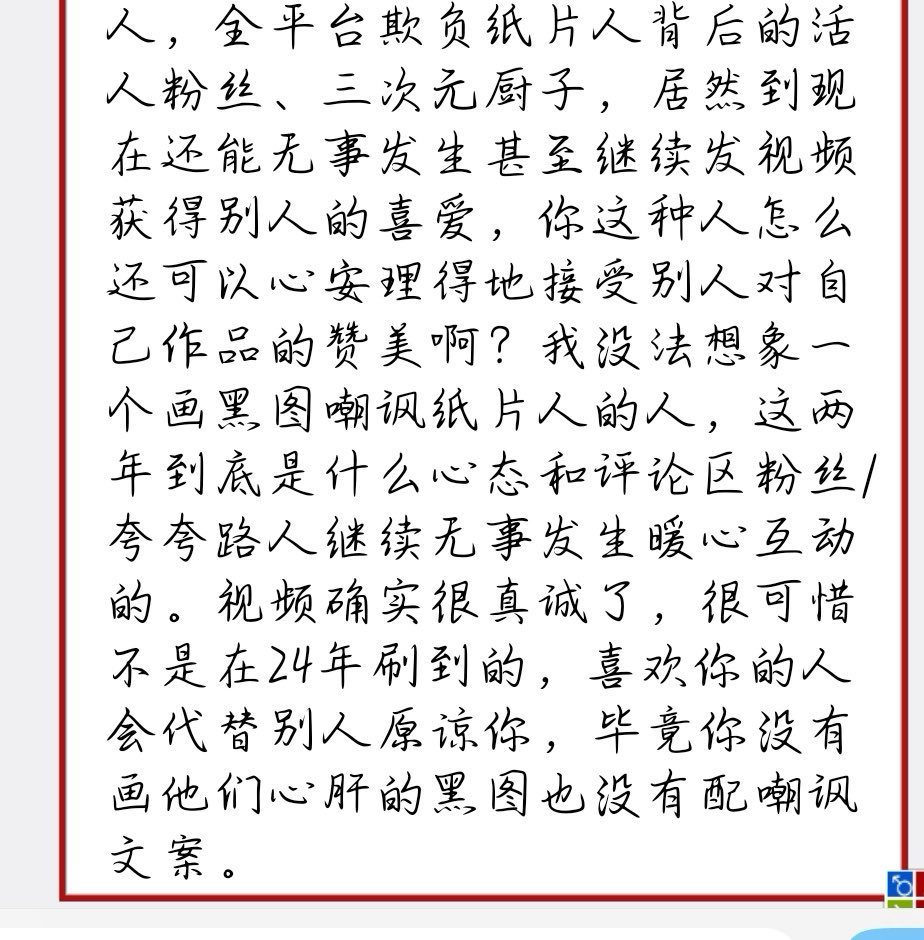 人，全平台欺负纸片人背后的活
人粉丝、三次元厨子，居然到现
在还能无事发生甚至继续发视频
获得别人的喜爱，你这种人怎么
还可以心安理得地接受别人对自
己作品的赞美啊？我没法想象一
个画黑图嘲讽纸片人的人，这两
年到底是什么心态和评论区粉丝/
夸夸路人继续无事发生暖心互动
的。视频确实很真诚了，很可惜
不是在24年刷到的，喜欢你的人
会代替别人原谅你，毕竟你没有
画他们心肝的黑图也没有配嘲讽
文案。